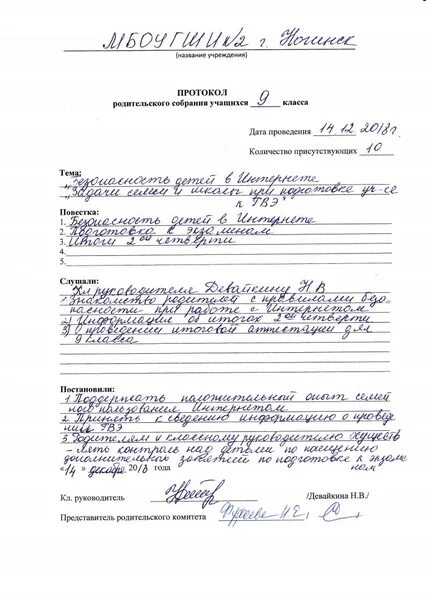 МБОУ ГШИ №2 г. Ногинск
(название учреждения)
ПРОТОКОЛ
родительского собрания учащихся 9 класса
Дата проведения 14.12.2018г
Количество присутствующих 10
Тема:
„Безопасность детей в Интернете
„Задачи семьи и школы при подготовке уч-ся
к ГВЭ"
Повестка:
1. Безопасность детей в Интернете
2. Подготовка к экзаменам
3. Итоги 2ой четверти
4.
5.
Слушали:
Кл руководителя Девайкину Н.В
1) Знакомство родителей с правилами безо
пасности при работе с Интернетом
2) Информация об итогах 2ой четверти
3) О проведении итоговой аттестации для
9 класса
Постановили:
1 Поддержать положительной опыт семей
ного пользования Интернетом
2. Принять к сведению информацию о прове
дении ГВЭ
3. Родителям и классному руководителю осуществ
-лять контроль над детьми по посещению
дополнительных занятий по подготовке к экзаме
нам
«14» декабря 2018 года
Кл. руководитель /Девайкина Н.В./
Представитель родительского комитета